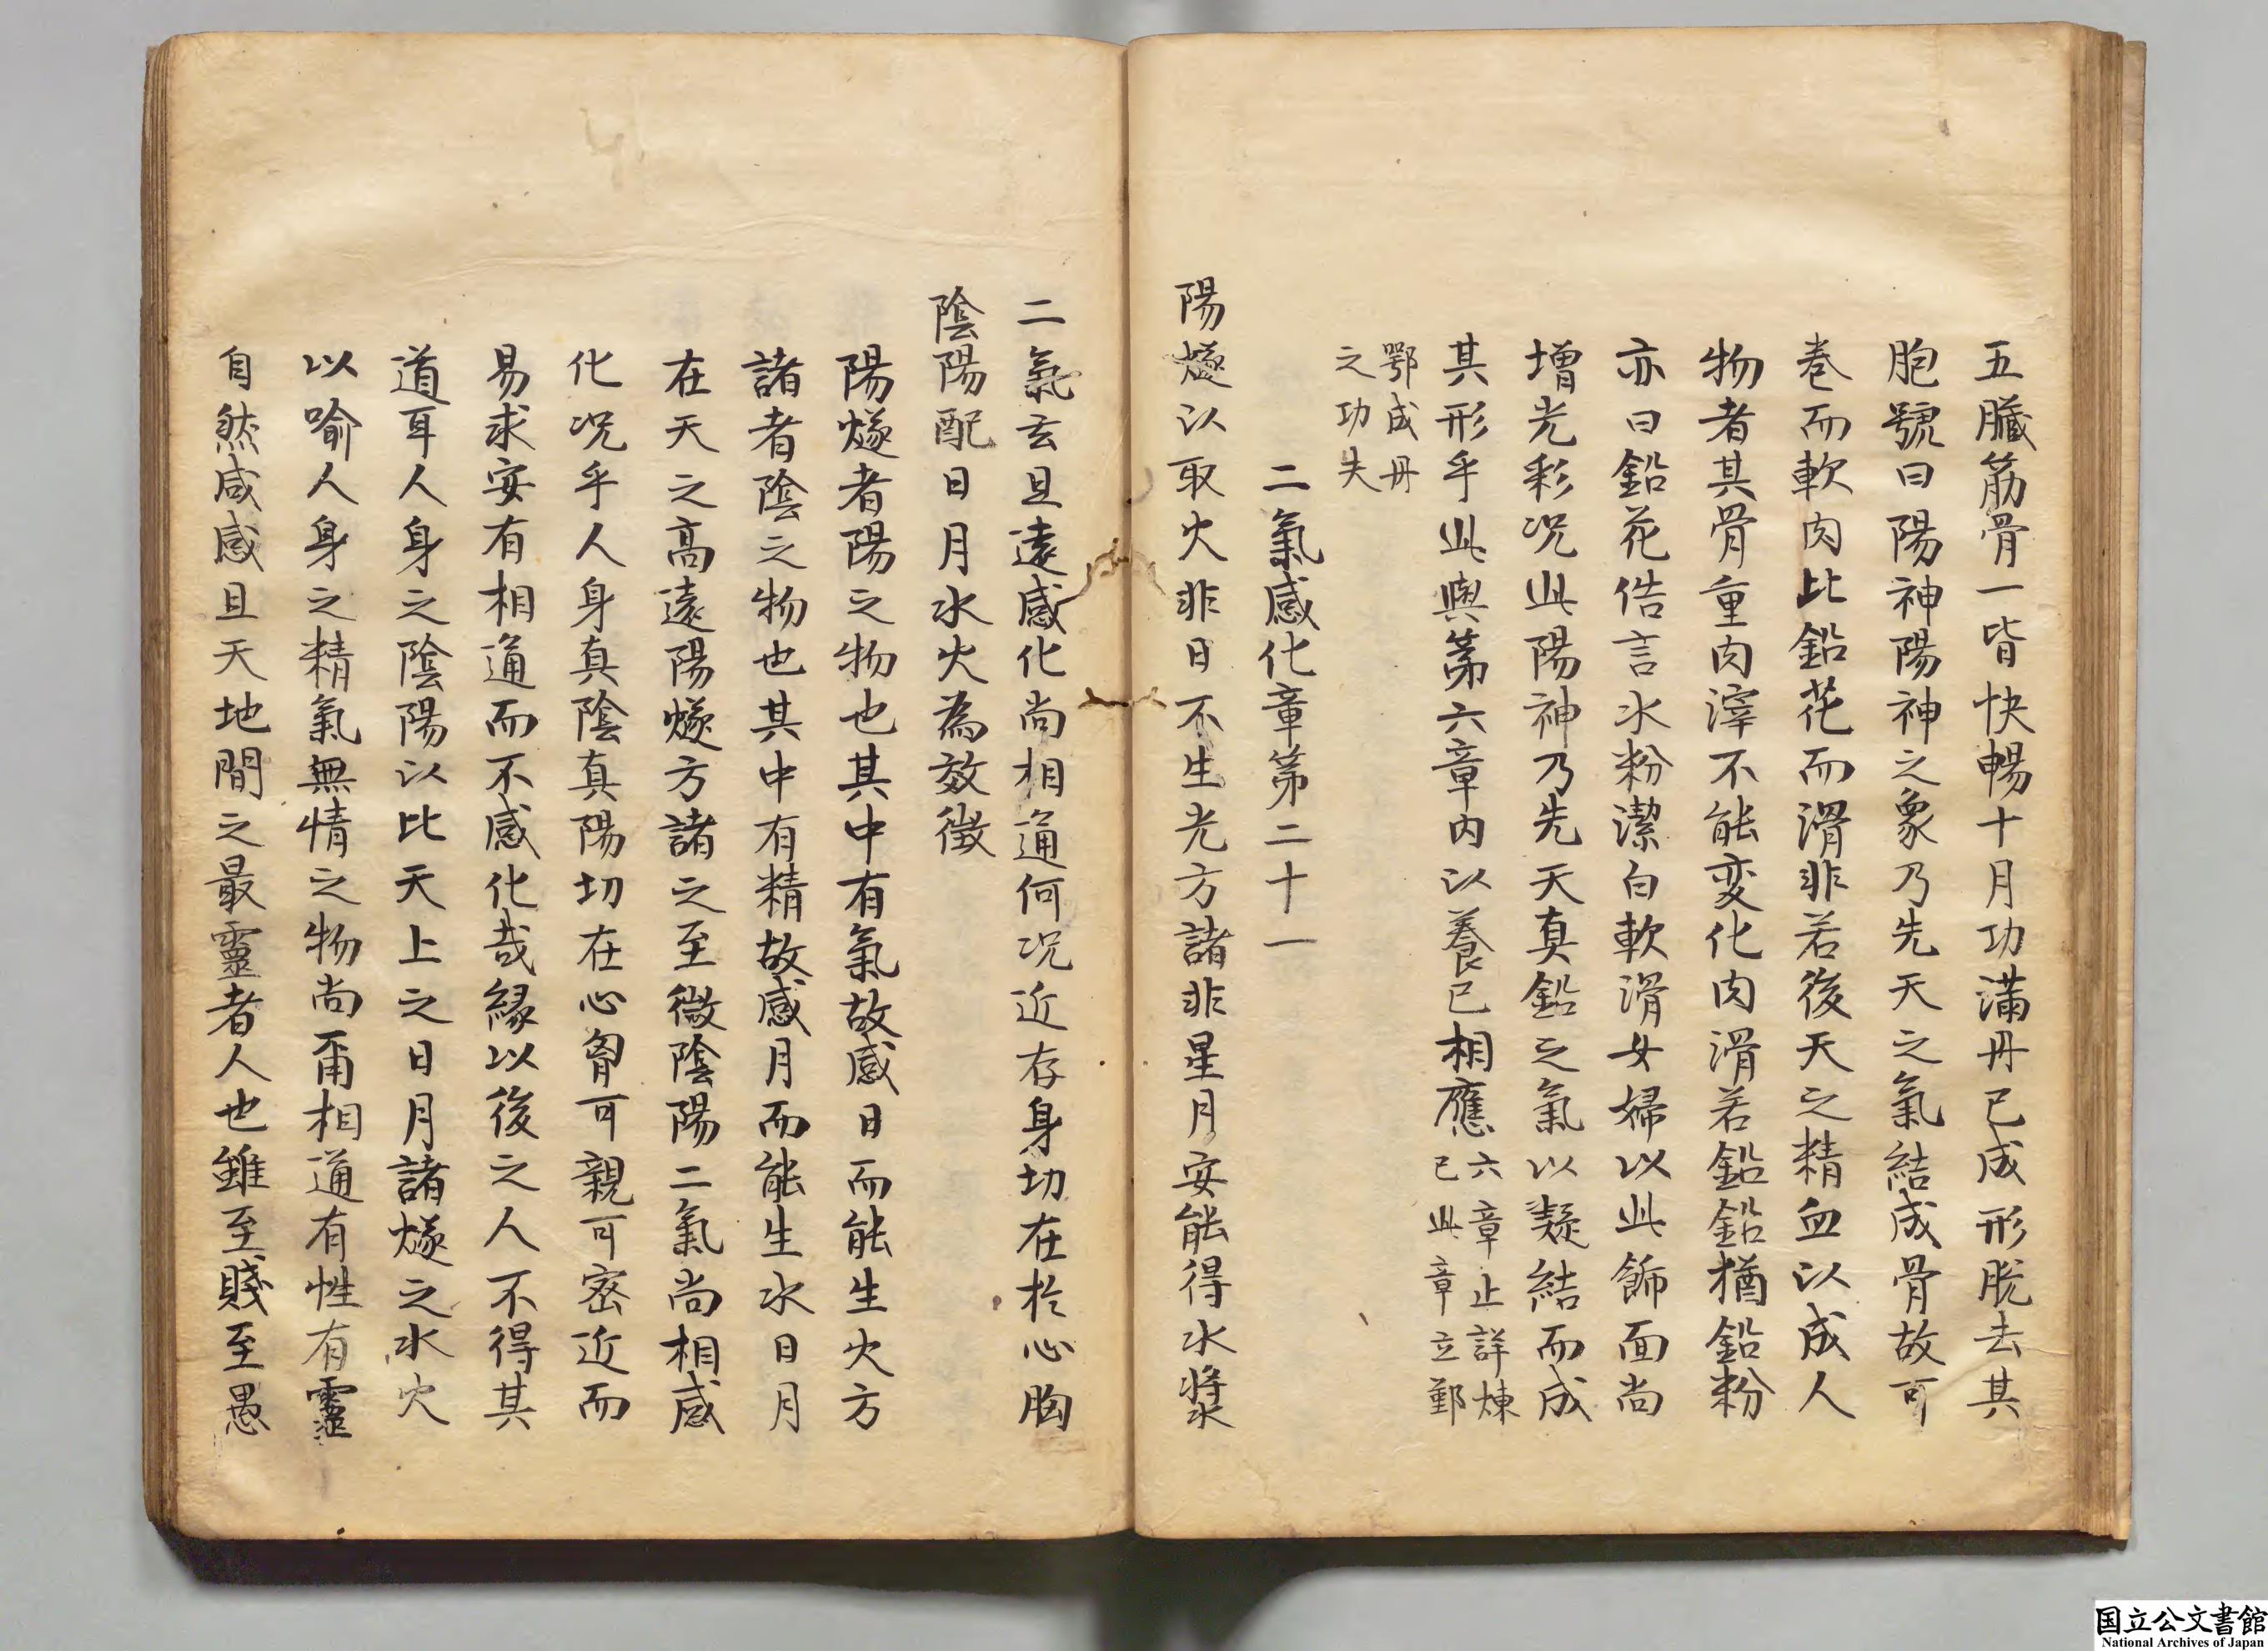 五臓筋骨一皆快暢十月功滿丹已成形脫去其
胞號曰陽神陽神之象乃先天之氣結成骨故可
巻而軟肉比鉛花而滑非若後天之精血以成人
物者其骨重肉滓不能変化肉滑若鉛鉛猶鉛粉
亦曰鉛花俈言水粉潔白軟滑女婦以此飾面尚
增光彩况此陽神乃先天真鉛之氣以凝結而成
其形乎此與第六章内以養己相應六章止詳煉
己此章立郢
鄂成丹
之功夫
二氣感化章第二十一
陽燧以取火非日不生光方諸非星月安能得水漿
二氣玄且遠感化尚相通何况近存身切在於心胸
陰陽配日月水火為效徵
陽燧者陽之物也其中有氣故感日而能生火方
諸者陰之物也其中有精故感月而能生水日月
在天之高遠陽燧方諸之至微陰陽二氣尚相感
化况乎人身真陰真陽切在心胷可親可密近而
易求安有相通而不感化哉縁以後之人不得其
道耳人身之陰陽以比天上之日月諸燧之水火
以喻人身之精氣無情之物尚爾相通有性有靈
自然咸感且天地間之最靈者人也雖至賤至愚
国立公文書館
National Archives of Japan